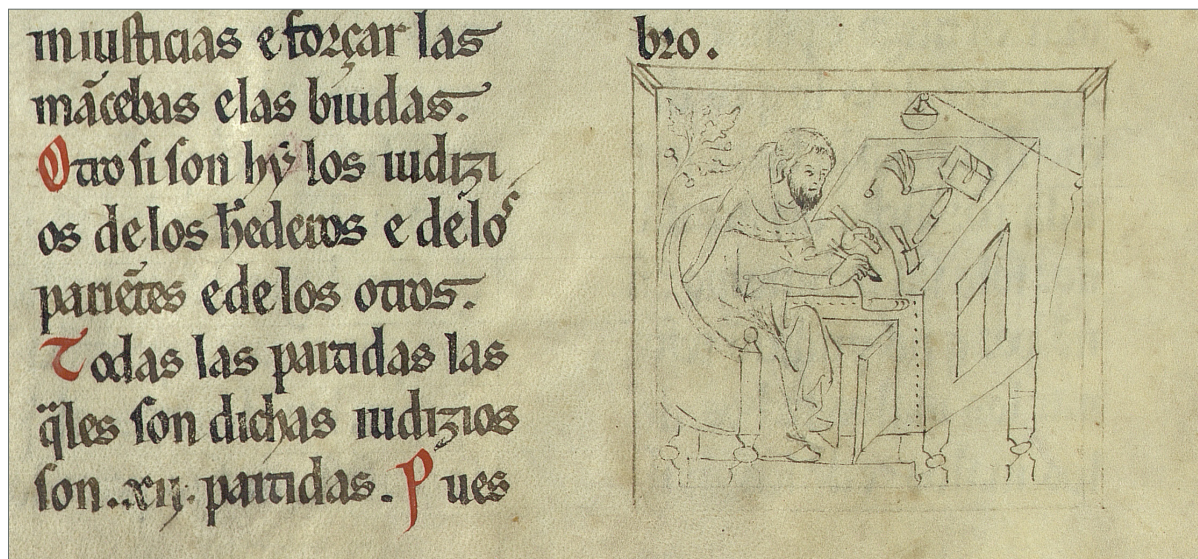 iniusticias e forçar las
mãcebas e las biudas.
Otro si son hy los iudizi
os de los h̃ederos e de los
pariẽtes e de los otros.
Todas las partidas las
q̃les son dichas iudizios
son .xij. partidas. Pues
bro.